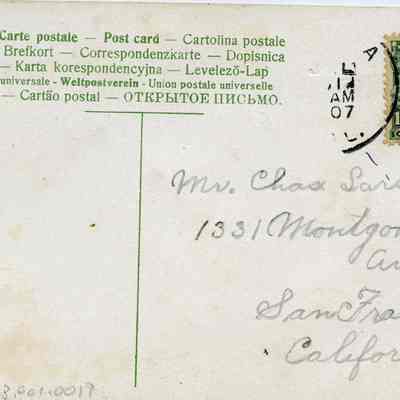 Carte postale — Post card — Cartolina postale
Brefkort — Correspondenzkarte — Dopisnica
— Karta korespondencyjna — Levelező-Lap
universale - Weltpostverein - Union postale universelle
— Cartão postal — ОТКРЫТОЕ ПИСЬМО.
A
AM
07
Mr. Chas
1331 Montgo
Av
San Fra
Califor